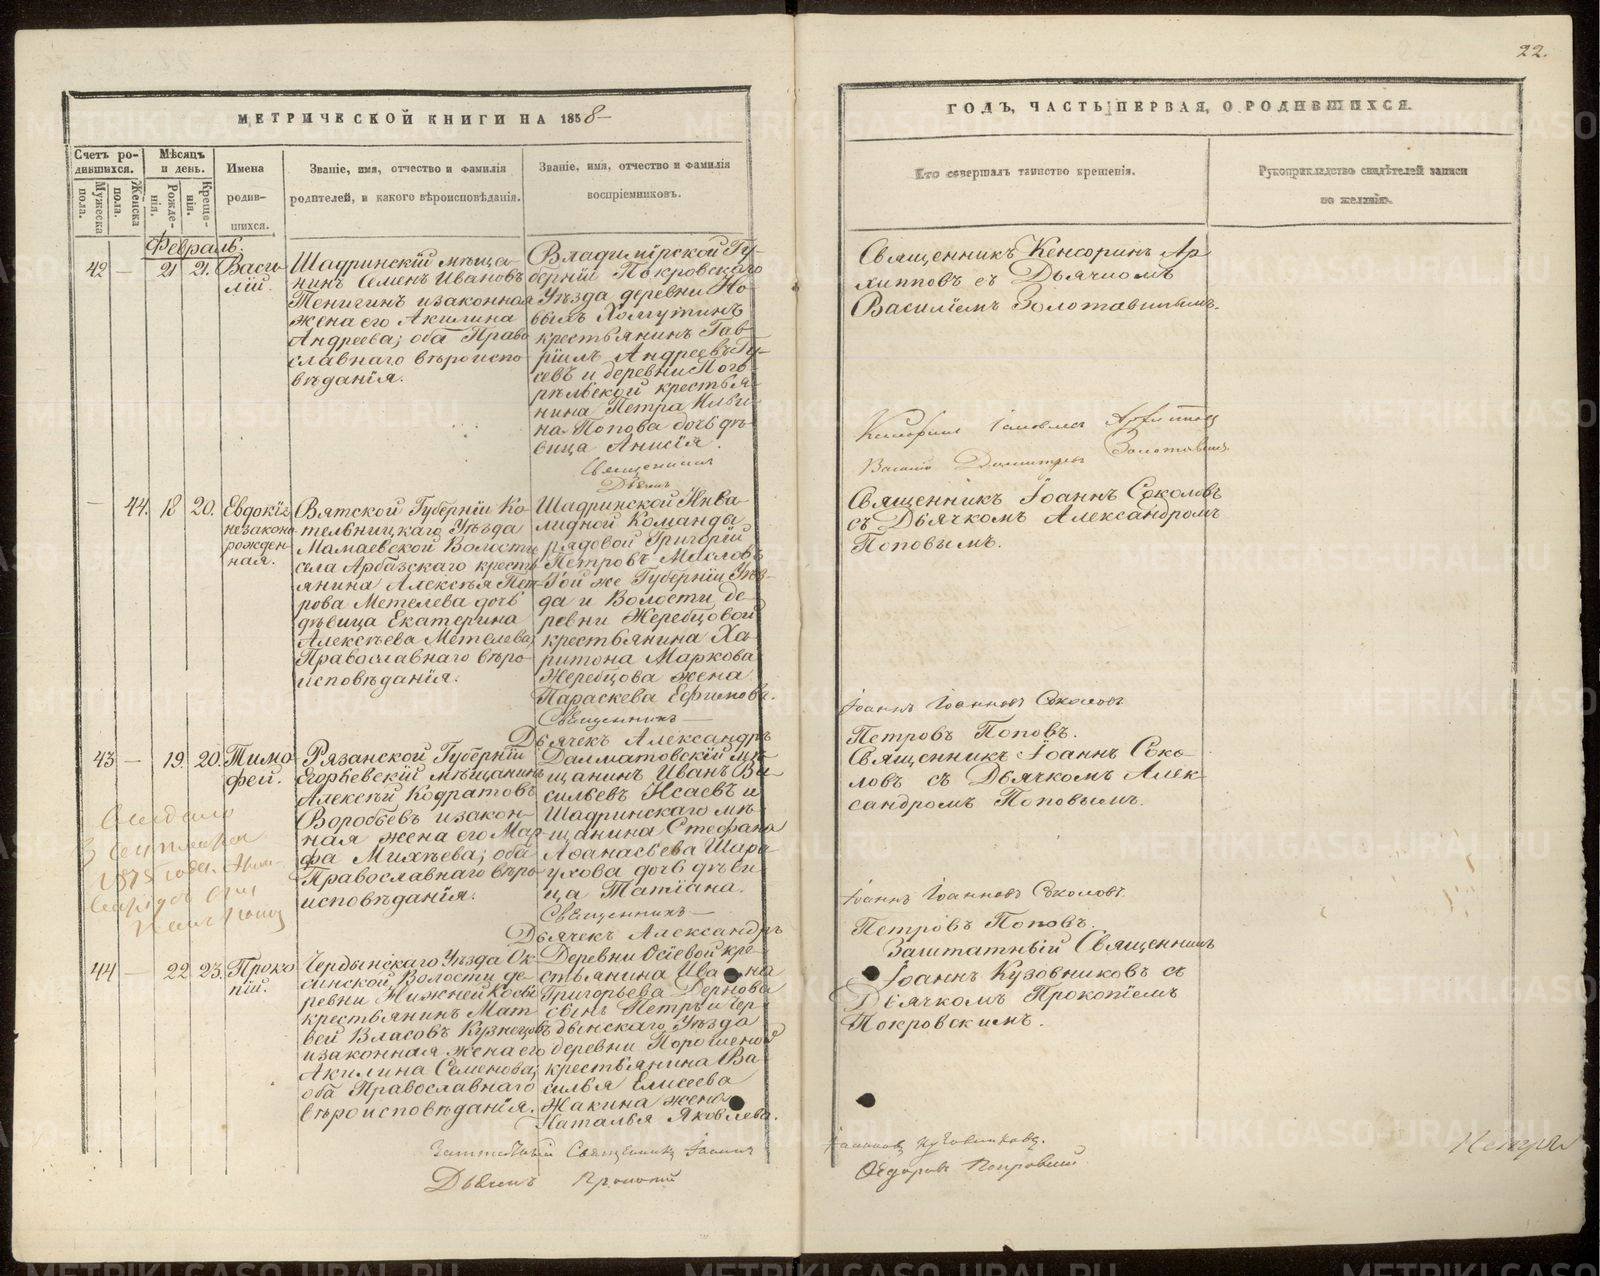 22.
МЕТРИЧЕСКОЙ КНИГИ НА 1858
ГОДЪ, ЧАСТЬ ПЕРВАЯ, О РОДИВШИХСЯ.
Счетъ родившихся.
Мужеска пола.
Женска пола.
Мѣсяцъ и день.
Рожденія.
Крещенія.
Имена родившихся.
Званіе, имя, отчество и фамилія
родителей, и какого вѣроисповѣданія.
Званіе, имя, отчество и фамилія
воспріемниковъ.
Кто совершалъ таинство крещенія.
Рукоприкладство свидѣтелей записи
по желанію.
Февраль.
42 — 21 21. Васи-
лій.
Шадринскій мѣща-
нинъ Семенъ Ивановъ
Тенигинъ и законная
жена его Акилина
Андреева; оба Право
славнаго вѣроиспо
вѣданія.
Владимірской Гу-
берніи Покровскаго
Уѣзда деревни Но-
выхъ Хомутинъ
крестьянинъ Гав-
ріилъ Андреевъ Гу-
севъ и деревни Пого
рѣльской крестья-
нина Петра Ильи-
на Попова дочь дѣ-
вица Анисія.
Священникъ
Дьячекъ
Священникъ Кенсоринъ Ар
хипповъ съ Дьячкомъ
Василіемъ Золотавинымъ.
Василій Димитріевъ Золотавинъ
— 44. 18 20. Евдокія
незаконо
рожден
ная.
Вятской Губерніи Ко-
тельническаго Уѣзда
Мамаевской Волости
села Арбазскаго кресть
янина Алексѣя Пет-
рова Метелева дочь
дѣвица Екатерина
Алексѣева Метелева;
Православнаго вѣро-
исповѣданія.
Шадринской Инва
лидной Команды
рядовой Григорій
Петровъ Масловъ
Той же Губерніи Уѣз-
да и Волости де-
ревни Жеребцовой
крестьянина Ха-
ритона Маркова
Жеребцова жена
Параскева Ефимова.
Священникъ —
Дьячекъ Александръ
Священникъ Іоаннъ Соколовъ
съ Дьячкомъ Александромъ
Поповымъ.
Іоаннъ Іоанновъ Соколовъ
Петровъ Поповъ.
43 — 19. 20. Тимо
фей.
Рязанской Губерніи
Егорьевскій мѣщанинъ
Алексѣй Кодратовъ
Воробьевъ и закон-
ная жена его Мар-
фа Михѣева; оба
Православнаго вѣро
исповѣданія.
Далматовскій мѣ-
щанинъ Иванъ Ва-
сильевъ Исаевъ и
Шадринскаго мѣ-
щанина Стефана
Аѳанасьева Шара
ухова дочь дѣви-
ца Татіана.
Священникъ —
Дьячекъ Александръ
Священникъ Іоаннъ Соко-
ловъ съ Дьячкомъ Алек-
сандромъ Поповымъ.
Іоаннъ Іоанновъ Соколовъ.
Петровъ Поповъ.
3 Сентября
1875 года
44 — 22 23. Проко
пій.
Чердынскаго Уѣзда
Волости де-
ревни Нижней Косьв
крестьянинъ Мат
вей Власовъ Кузнецовъ
и законная жена его
Акилина Семенова;
оба Православнаго
вѣроисповѣданія.
Деревни Осіевой кре-
стьянина Ивана
Григорьева Дернова
сынъ Петръ и Чер
дынскаго Уѣзда
деревни Порошеной
крестьянина Ва-
силья Елисеева
Жакина жена
Наталья Яковлева.
Заштатный Священникъ Іоаннъ
Дьячекъ Прокопій
Заштатный Священникъ
Іоаннъ Кузовниковъ съ
Дьячкомъ Прокопіемъ
Покровскимъ.
Іоанновъ Кузовниковъ.
Ѳедоровъ Покровскій